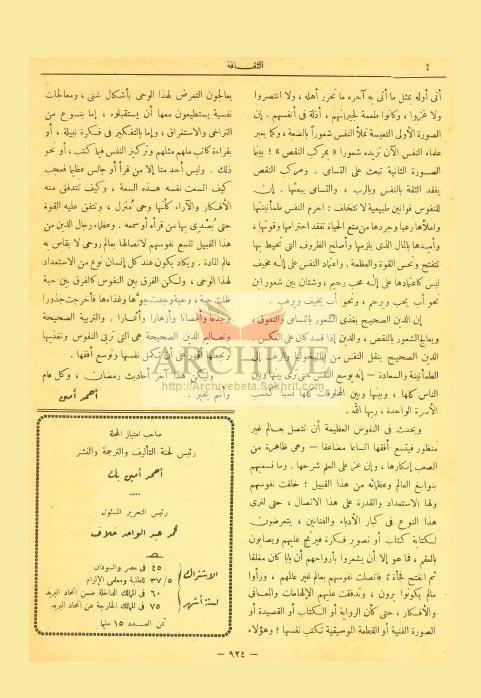 ٤
الثقافة
أتى أوله بمثل ما أتى به آخره ما تحرر أهله ، ولا انتصروا
ولا غزوا ، وكانوا طعمة لجيرانهم ، أذلة فى أنفسهم . إن
الصورة الأولى التعيسة تملأ النفس شعوراً بالضعة ، وكما يعبر
علماء النفس الآن تزيده شعورا « بمركب النقص » ؛ بينما
الصورة الثانية تبعث على التسامى . ومركب النقص
يفقد الثقة بالنفس وبالرب ، والتسامى يبعثها . إن
للنفوس قوانين طبيعية لا تتخلف : احرم النفس طمأنينتها
واملأها رعبا وجردها من متع الحياة تفقد احترامها وقوتها ،
وأمدها بالمال الذى يلزمها وأصلح الظروف التى تحيط بها
تتفتح وتحس القوة والعظمة . واعتماد النفس على إله مخيف
ليس كاعتمادها على إله محب رحيم ، وشتان بين شعور ابن
نحو أب يحب ويرحم ، ونحو أب يخيف ويرهب .
إن الدين الصحيح يغذى الشعور بالتسامى والتفوق ،
ويعالج الشعور بالنقص ، والدين إذا فسد كان على العكس .
الدين الصحيح ينقل النفس من المالنخوليا والرعب إلى
الطمأنينة والسعادة — إنه يوسع النفس حتى ترى بينها وبين
الناس كلها ، وبينها وبين المخلوقات كلها نسبا كنسب
الأسرة الواحدة ، ربها الله .
ويحدث فى النفوس العظيمة أن تتصل بعالم غير
منظور فيتسع أفقها اتساعا مضاعفا — وهى ظاهرة من
الصعب إنكارها ، وإن عز على العلم شرحها . وما نسميهم
بنوابغ العالم وعظمائه من هذا القبيل ؛ خلقت نفوسهم
ولها الاستعداد والقدرة على هذا الاتصال ، حتى لنرى
هذا النوع فى كبار الأدباء والفنانين ، يتعرضون
لكتابة كتاب أو تصوير فكرة فيرتج عليهم ويصابون
بالعقم ، فما هو إلا أن يشعروا بأرواحهم أن بابا كان مغلقا
ثم انفتح فجأة مما فاتصلت نفوسهم بعالم غير عالمهم ، ورأوا
مالم يكونوا يرون ، وتدفقت عليهم الإلهامات والمعانى
والأفكار ، حتى كأن الرواية أو الكتاب أو القصيدة أو
الصورة الفنية أو القطعة الموسيقية تكتب نفسها ؛ وهؤلاء
يعالجون التعرض لهذا الوحى بأشكال شتى ، ومعالجات
نفسية يستطيعون معها أن يستقبلوه ، إما بنوع من
التراخى والاستغراق ، وإما بالتفكير فى فكرة نبيلة ، أو
بقراءة كاتب ملهم مثلهم وتركيز النفس فيما كتب ، أو نحو
ذلك . وليس أحد منا إلا من قرأ أو جالس عظيما فعجب
كيف اتسعت نفسه هذه السعة ، وكيف تتدفق منه
الأفكار والآراء كأنها وحى مُنزل ، وتنفق عليه القوة
حتى يُعدى بها من قرأه أو سمعه . وعظماء رجال الدين من
هذا القبيل تتسع نفوسهم لاتصالها بعالم روحى لا يقاس به
عالم المادة . ويكاد يكون عند كل إنسان نوع من الاستعداد
لهذا الوحى ، ولكن الفرق بين النفوس كالفرق بين حبة
ظلت حبة ، وحبة وجدت جوها وغذاءها فأخرجت جذورا
وجذعا وأغصانا وأزهارا وأثمارا . والتربية الصحيحة
وتعاليم الدين الصحيحة هى التى تربى النفوس وتغذيها
وتجعلها أقدر على أن تكمل نفسها وتوسع أفقها .
وليكن هذا آخر أحاديث رمضان ، وكل عام
وأنتم بخير .
أحمد أمين
ARCHIVE
http://Archivebeta.Sakhrit.com
صاحب امتياز المجلة
رئيس لجنة التأليف والترجمة والنشر
أحمد أمين بك
رئيس التحرير المسئول
محمد عبد الواحد خلاف
الاشتراك
لستة أشهر
٤٥ فى مصر والسودان
٣٧/٥ للطلبة ومعلمى الإلزام
٦٠ فى الممالك الداخلة ضمن اتحاد البريد
٧٥ فى الممالك الخارجة عن اتحاد البريد
ثمن العدد ١٥ مليما
— ٩٢٤ —